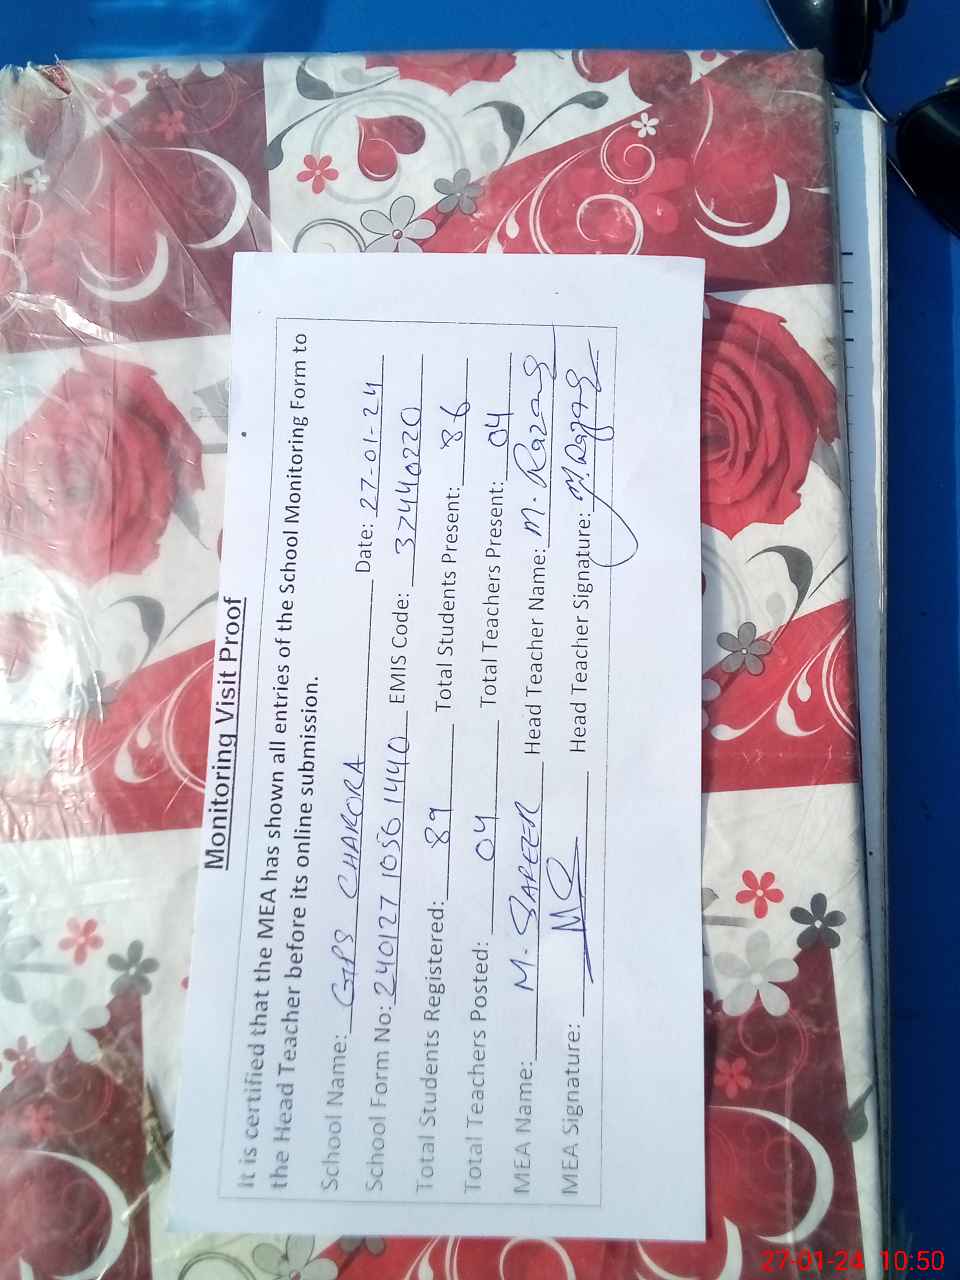 Monitoring Visit Proof
It is certified that the MEA has shown all entries of the School Monitoring Form to
the Head Teacher before its online submission.
School Name: GPS CHAKORA Date: 27-01-24
School Form No: 240127 1056 1440 EMIS Code: 37440220
Total Students Registered: 89 Total Students Present: 86
Total Teachers Posted: 04 Total Teachers Present: 04
MEA Name: M. Head Teacher Name: M. Razaq
MEA Signature: Head Teacher Signature: M. Razzaq
27-01-24 10:50